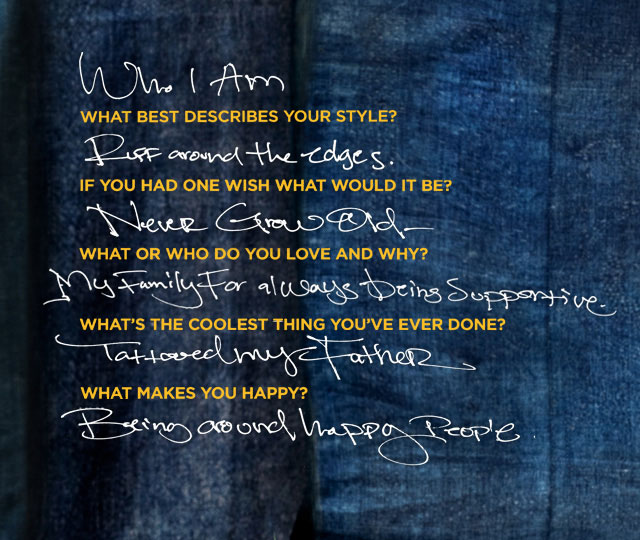 Who I Am
WHAT BEST DESCRIBES YOUR STYLE?
Ruff around the edges.
IF YOU HAD ONE WISH WHAT WOULD IT BE?
Never Grow Old
WHAT OR WHO DO YOU LOVE AND WHY?
My Family For always being Supportive.
WHAT'S THE COOLEST THING YOU'VE EVER DONE?
Tattooed my Father
WHAT MAKES YOU HAPPY?
Being around happy People.